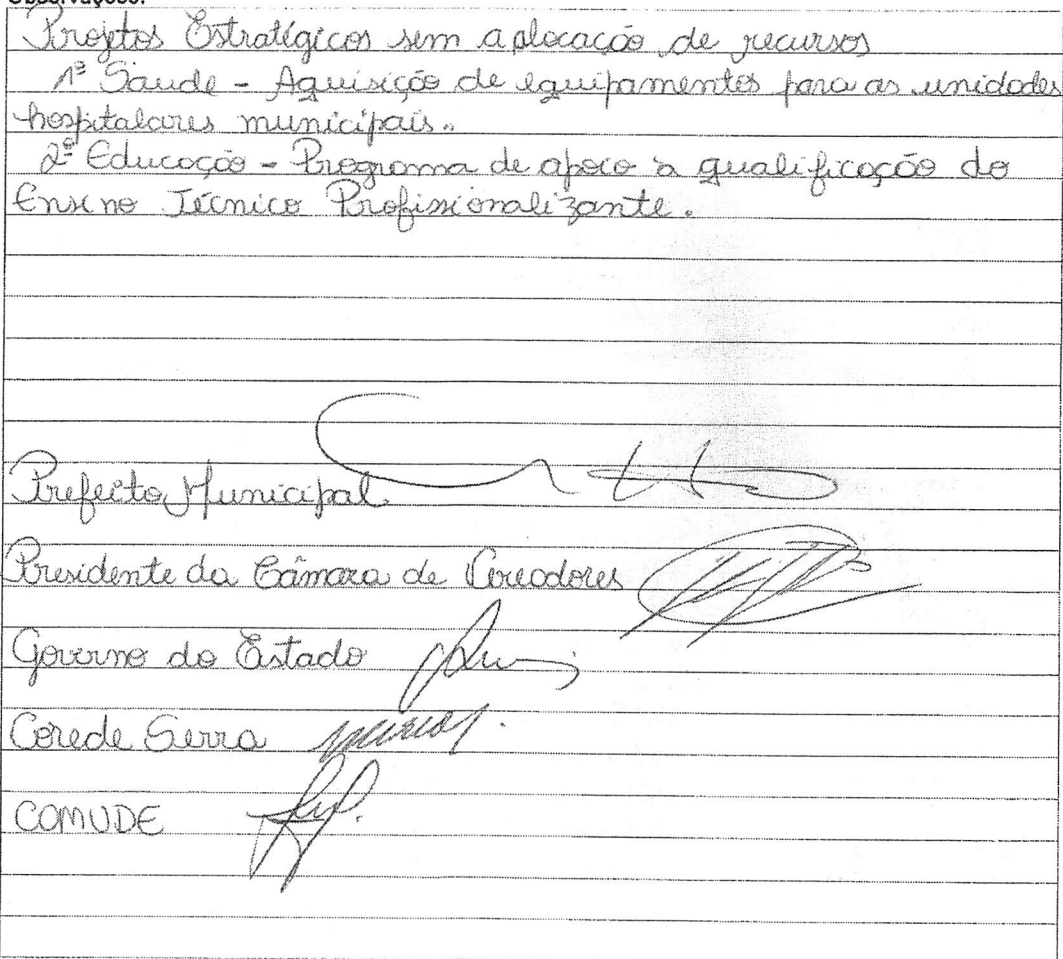 Observações:
Projetos Estratégicos sem a alocação de recursos
1ª Saude - Aquisição de equipamentos para as unidades
hospitalares municipais.
2ª Educação - Programa de apoio à qualificação do
Ensino Técnico Profissionalizante.
Prefeito Municipal
Presidente da Câmara de Vereadores
Governo do Estado
Corede Serra
COMUDE